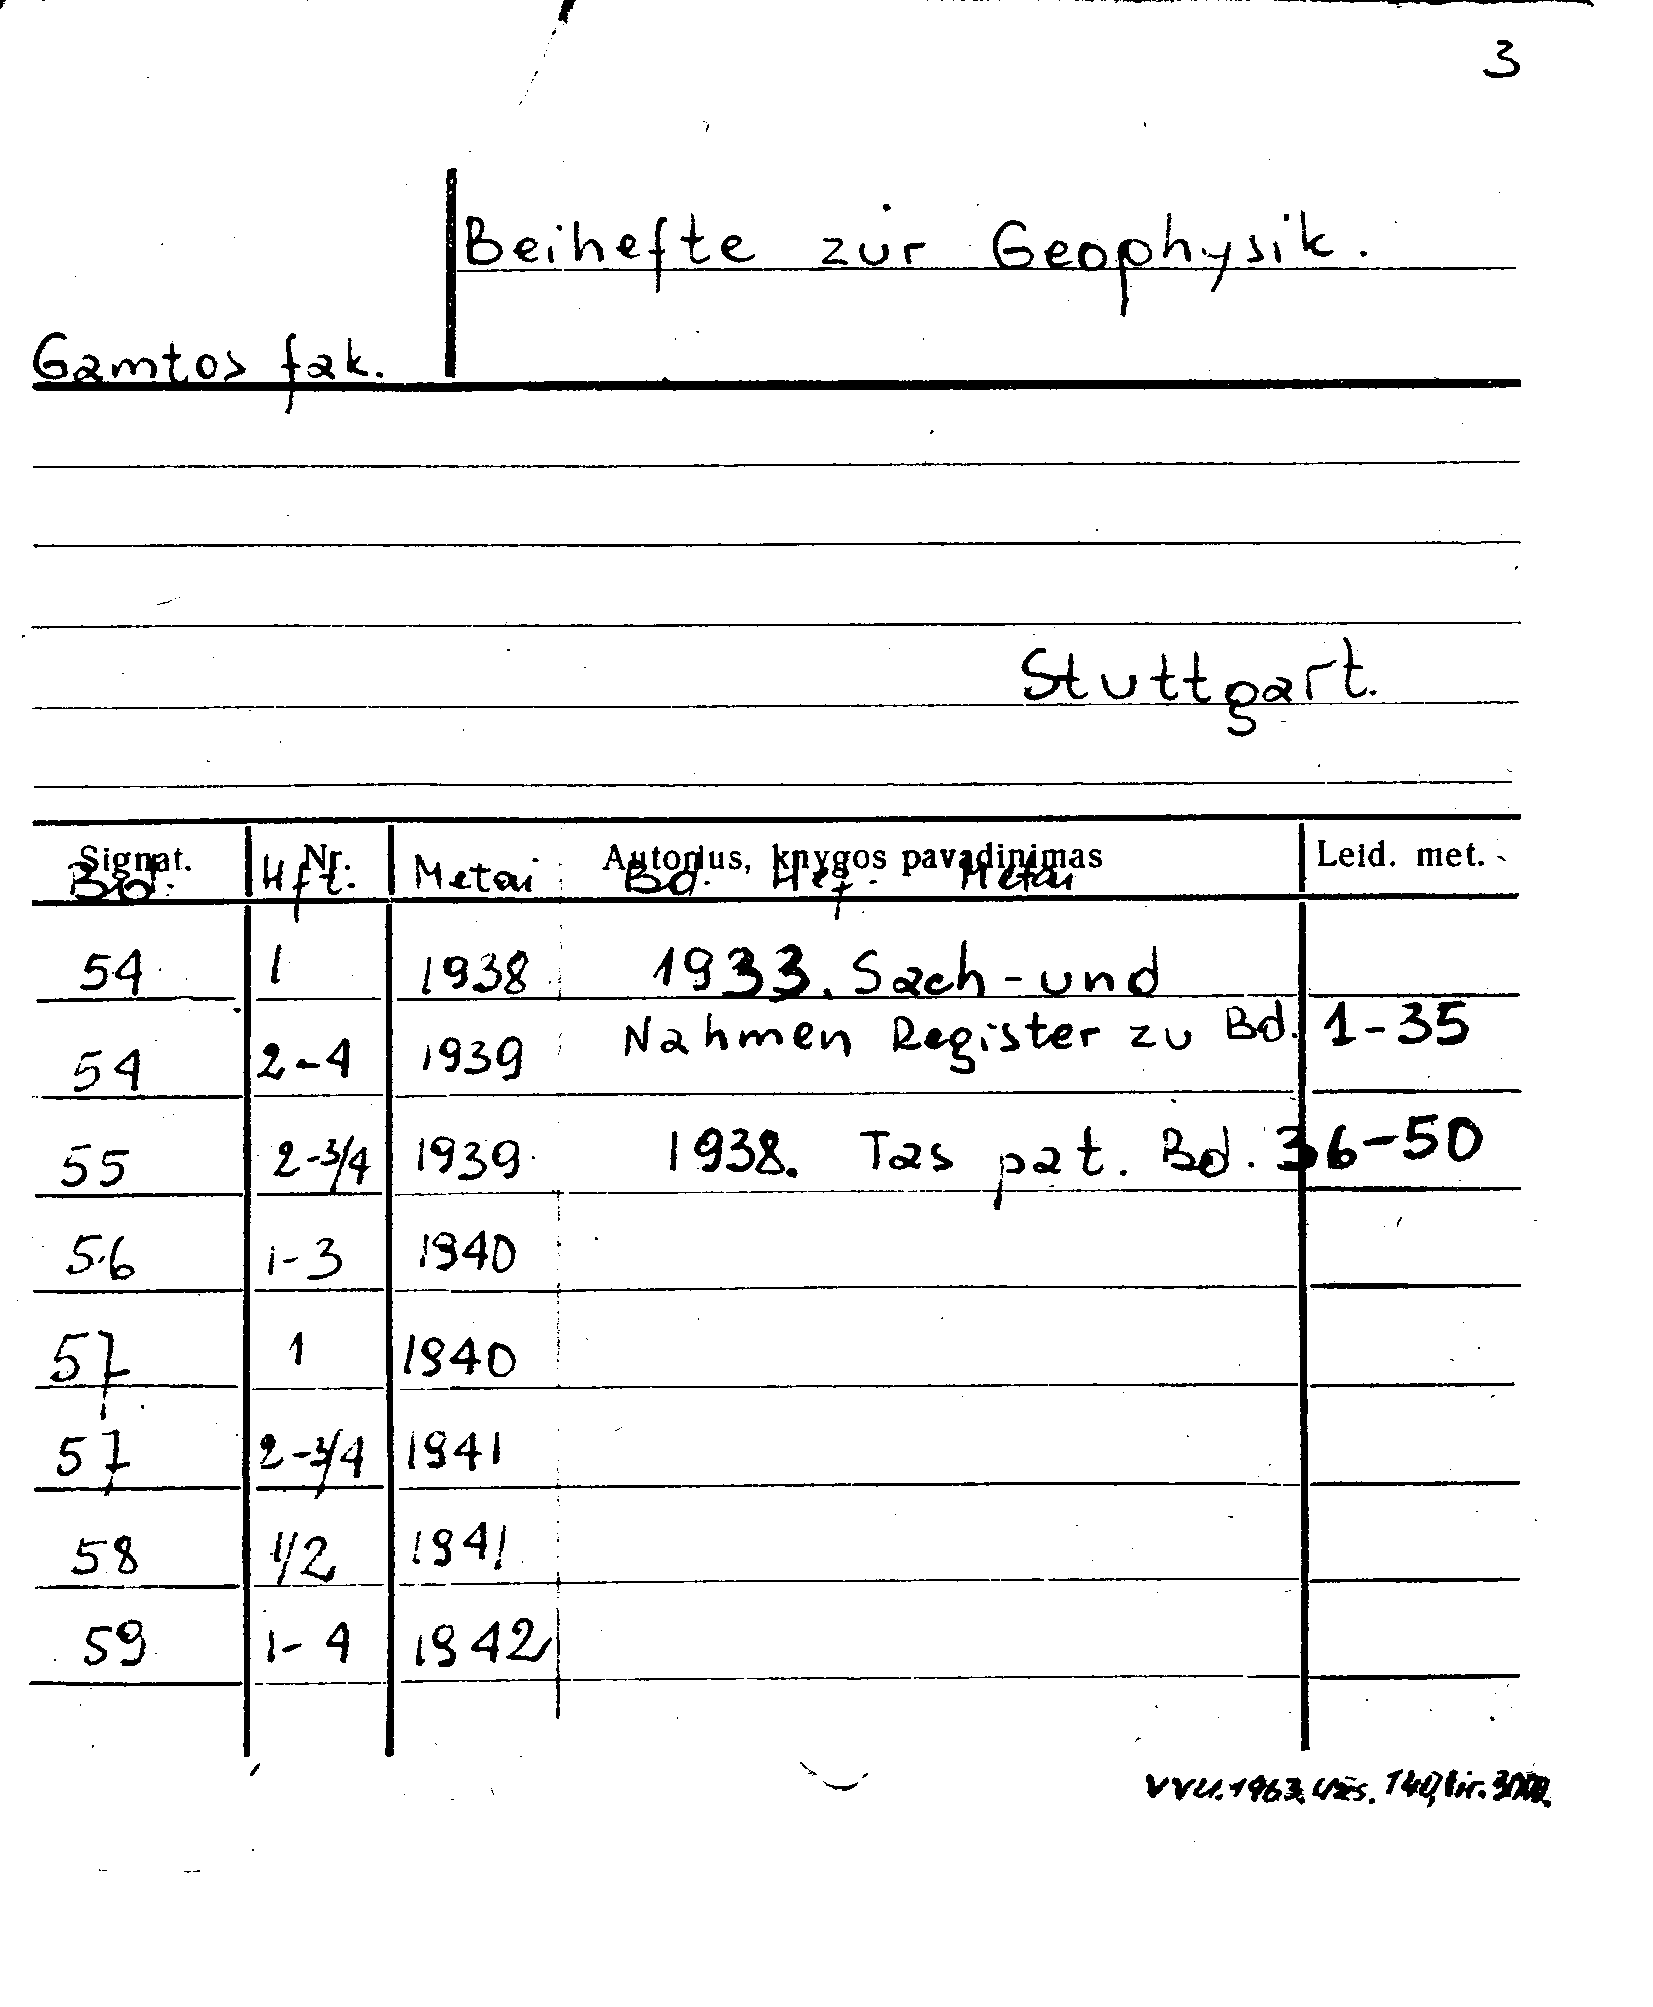 3
Beihefte zur Geophysik.
Gamtos fak.
Stuttgart.
Signat. Nr. Autorius, knygos pavadinimas Leid. met.
Bd. Hft. Metai Bd. Hef. Metai
54 1 1938 1933. Sach-und
54 2-4 1939 Nahmen Register zu Bd. 1-35
55 2-3/4 1939 1938. Tas pat. Bd. 36-50
56 1-3 1940
57 1 1940
57 2-3/4 1941
58 1/2 1941
59 1-4 1942
VVU. 1963. Užs. 140, tir. 3000.